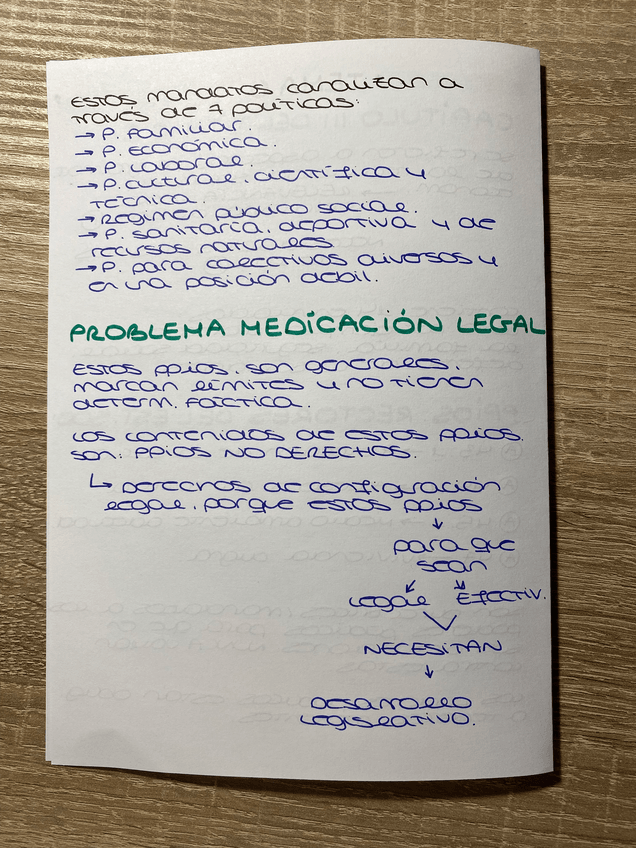 ESTOS MANDATOS CANALIZAN A
TRAVÉS DE 7 POLÍTICAS:
→ P. FAMILIAR.
→ P. ECONÓMICA.
→ P. LABORAL.
→ P. CULTURAL, CIENTÍFICA Y
TÉCNICA.
→ RÉGIMEN PÚBLICO SOCIAL.
→ P. SANITARIA, DEPORTIVA Y DE
RECURSOS NATURALES
→ P. PARA COLECTIVOS DIVERSOS Y
EN UNA POSICIÓN DÉBIL.
PROBLEMA MEDICACIÓN LEGAL
ESTOS PPIOS. SON GENERALES,
MARCAN LÍMITES Y NO TIENEN
DETERM. FÁCTICA.
LOS CONTENIDOS DE ESTOS PPIOS.
SON: PPIOS NO DERECHOS.
↳ DERECHOS DE CONFIGURACIÓN
LEGAL, PORQUE ESTOS PPIOS
↓
PARA QUE
SEAN
↙ ↘
LEGAL EFECTIV.
NECESITAN
↓
DESARROLLO
LEGISLATIVO.